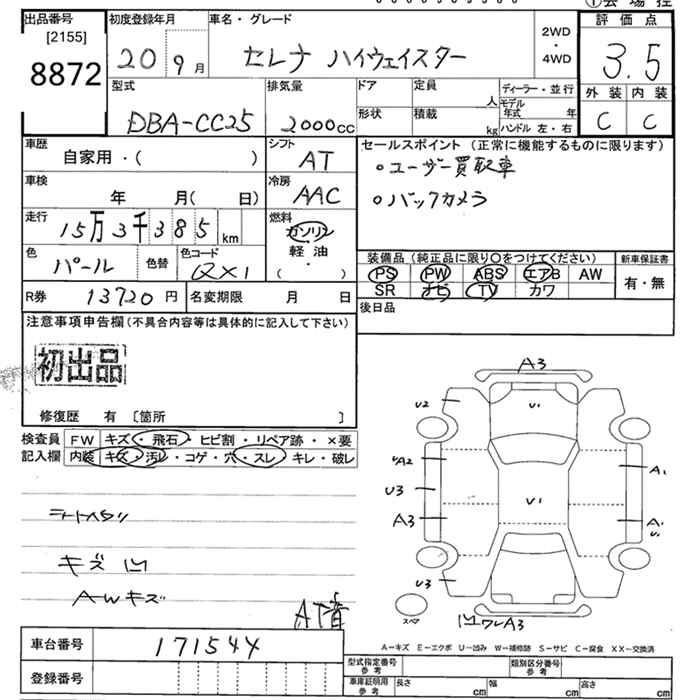 出品番号
[2155]
8872
初度登録年月
20 9月
車名・グレード
セレナ ハイウェイスター
2WD
・
4WD
評価点
3.5
外装 内装
C C
型式
DBA-CC25
排気量
2000cc
ドア
定員
人
形状
積載
kg
ディーラー・並行
モデル
年式 年
ハンドル 左・右
車歴
自家用・( )
シフト
AT
車検
年 月( 日)
冷房
AAC
走行
15万3千385km
燃料
ガソリン
軽油
( ・ )
色
パール
色替
色コード
QX1
R券
13720円
名変期限 月 日
セールスポイント (正常に機能するものに限ります)
○ユーザー買取車
○バックカメラ
装備品 (純正品に限り○をつけてください)
PS PW ABS エアB AW
SR ナビ TV カワ
新車保証書
有・無
後日品
注意事項申告欄(不具合内容等は具体的に記入して下さい)
初出品
修復歴 有 〔箇所 〕
検査員
記入欄
FW キズ・飛石・ヒビ割・リペア跡・×要
内装 キズ・汚レ・コゲ・穴・スレ・キレ・破レ
キズ 凹
AWキズ
AT音
A3
U2
U1
UA2
U3
A3
U1
A1
A1
U1
U3
凹ワレA3
スペア
A−キズ E−エクボ U−凹み W−補修跡 S−サビ C−腐食 XX−交換済
車台番号
171544
登録番号
型式指定番号
参考
類別区分番号
参考
車庫証明用
参考
長さ cm
幅 cm
高さ cm